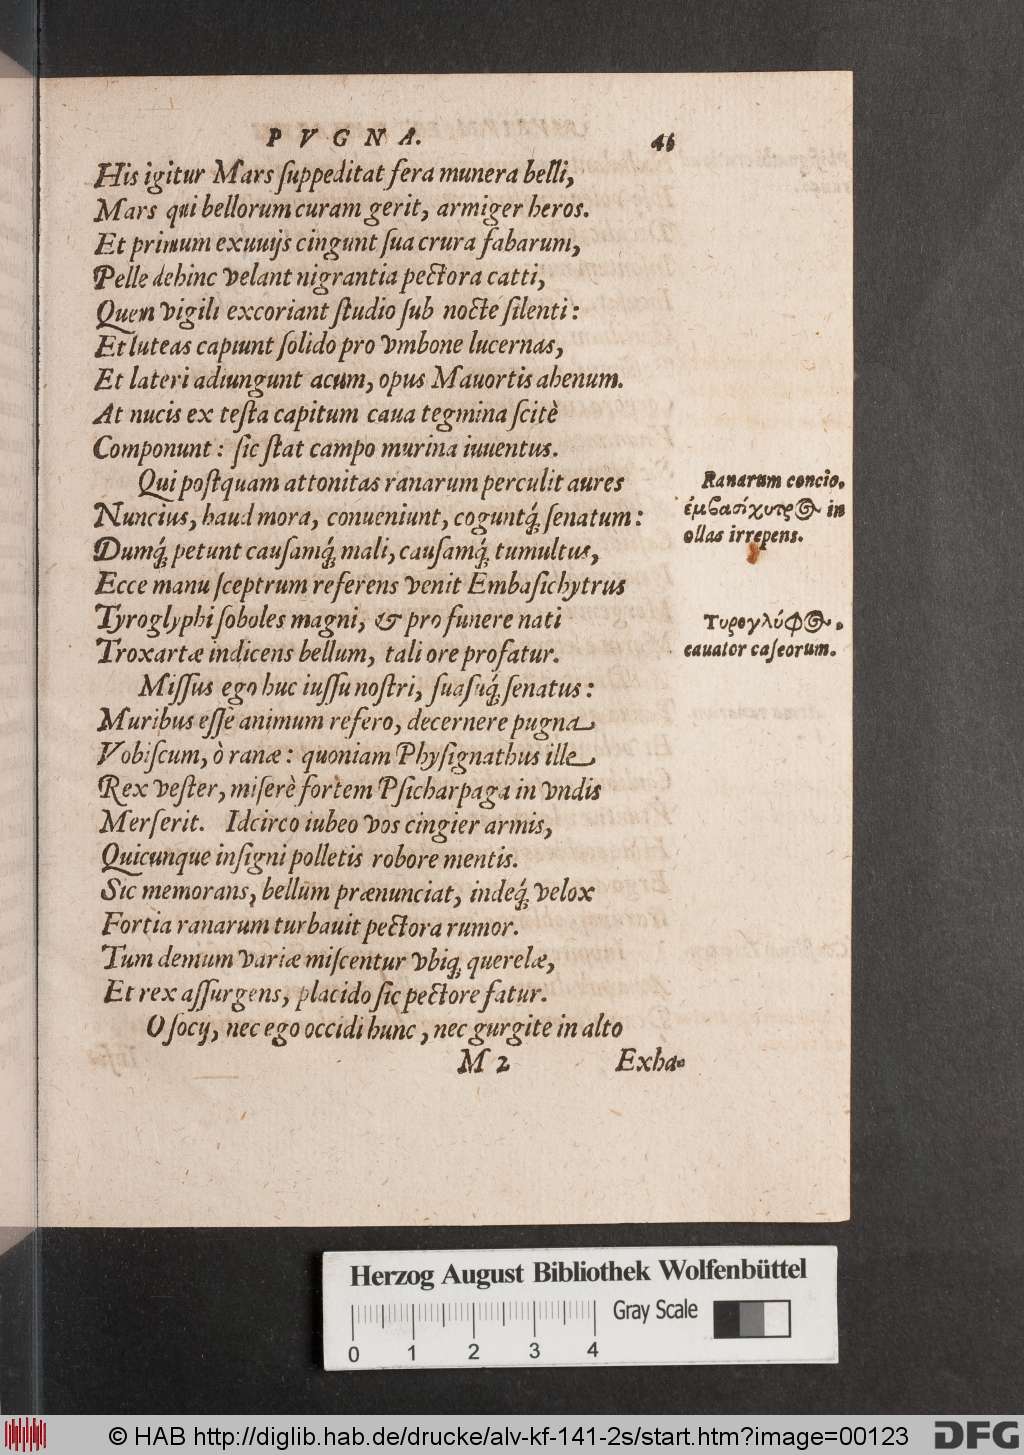 PVGNA. 46
His igitur Mars ſuppeditat fera munera belli,
Mars qui bellorum curam gerit, armiger heros.
Et primum exuuijs cingunt ſua crura fabarum,
Pelle dehinc velant nigrantia pectora catti,
Quem vigili excoriant ſtudio ſub nocte ſilenti:
Et luteas capiunt ſolido pro vmbone lucernas,
Et lateri adiungunt acum, opus Mauortis ahenum.
At nucis ex teſta capitum caua tegmina ſcitè
Componunt: ſic ſtat campo murina iuuentus.
Qui poſtquam attonitas ranarum perculit aures
Nuncius, haud mora, conueniunt, coguntq́; ſenatum:
Dumq́; petunt cauſamq́; mali, cauſamq́; tumultus,
Ecce manu ſceptrum referens venit Embaſichytrus
Tyroglyphi ſoboles magni, & pro funere nati
Troxartæ indicens bellum, tali ore profatur.
Miſſus ego huc iuſſu noſtri, ſuaſuq́; ſenatus:
Muribus eſſe animum refero, decernere pugna
Vobiſcum, ò ranæ: quoniam Phyſignathus ille
Rex veſter, miſerè fortem Pſicharpaga in vndis
Merſerit. Idcirco iubeo vos cingier armis,
Quicunque inſigni polletis robore mentis.
Sic memorans, bellum prænunciat, indeq́; velox
Fortia ranarum turbauit pectora rumor.
Tum demum variæ miſcentur vbiq; querelæ,
Et rex aſſurgens, placido ſic pectore fatur.
O ſocij, nec ego occidi hunc, nec gurgite in alto
M 2 Exha-
Ranarum concio.
ἐμβασίχυτρος in
ollas irrepens.
Τυρογλύφος,
cauator caſeorum.
Herzog August Bibliothek Wolfenbüttel
Gray Scale
0 1 2 3 4
© HAB http://diglib.hab.de/drucke/alv-kf-141-2s/start.htm?image=00123
DFG